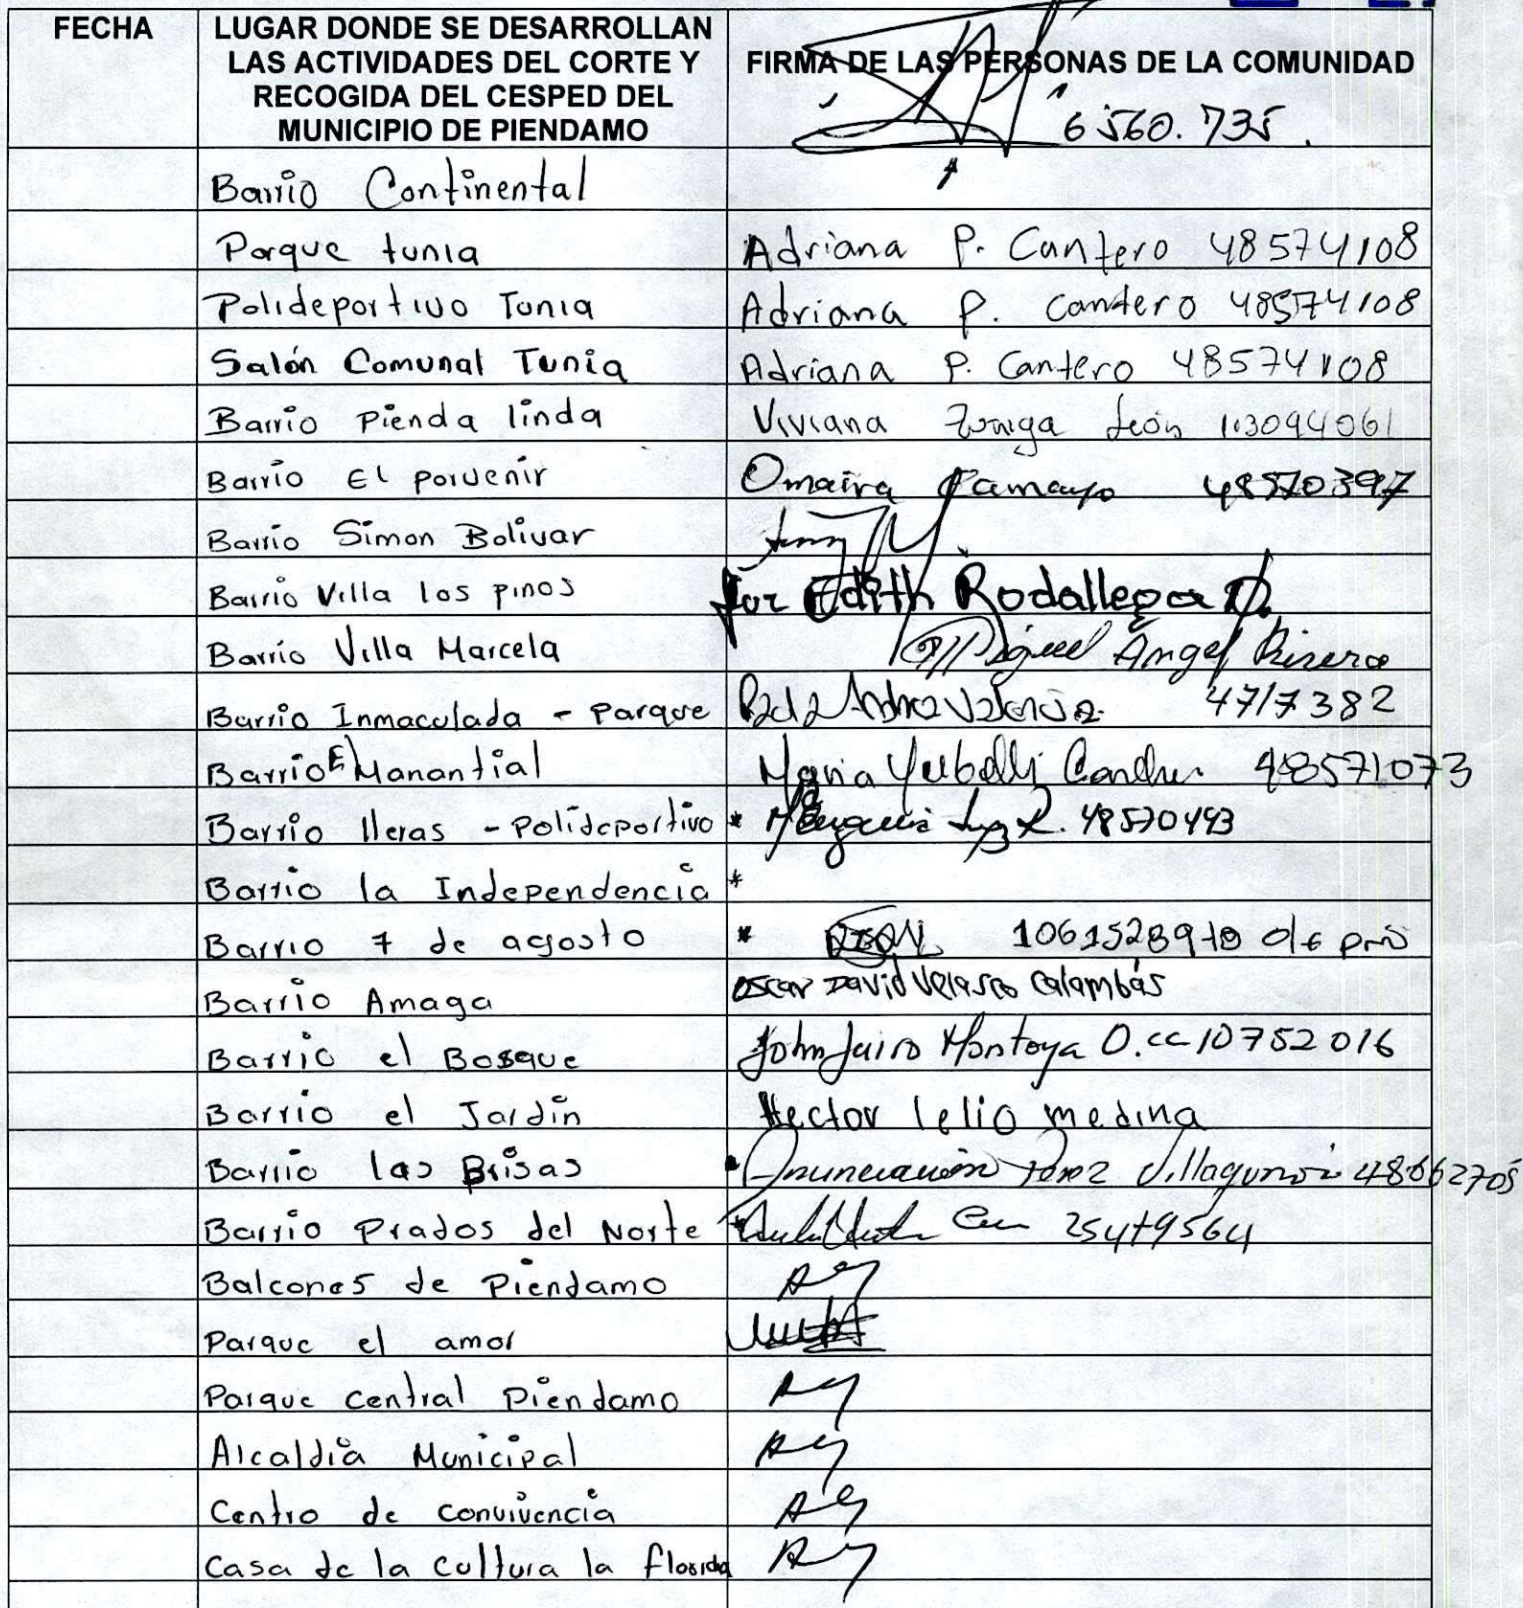 FECHA
LUGAR DONDE SE DESARROLLAN
LAS ACTIVIDADES DEL CORTE Y
RECOGIDA DEL CESPED DEL
MUNICIPIO DE PIENDAMO
FIRMA DE LAS PERSONAS DE LA COMUNIDAD
6560.735.
Barrio Continental
Parque tunia
Adriana P. Cantero 48574108
Polideportivo Tunia
Adriana P. Cantero 48574108
Salón Comunal Tunia
Adriana P. Cantero 48574108
Barrio Pienda linda
Viviana León 113094061
Barrio El porvenir
Omaira Camayo 48570397
Barrio Simon Bolivar
Barrio Villa los pinos
Luz Edith Rodallega D.
Barrio Villa Marcela
Miguel Ángel Rivera
Barrio Inmaculada - Parque
Valencia 4717382
Barrio El Manantial
Maria 48571073
Barrio lleras - Polideportivo
* 48570493
Barrio la Independencia *
Barrio 7 de agosto
* 1061528970
Barrio Amaga
Oscar David Velasco Calambás
Barrio el Bosque
John Jairo Montoya O. cc 10752016
Barrio el Jardin
Hector lelio medina
Barrio las Brisas
Barrio Prados del Norte
* 25479564
Balcones de Piendamo
Parque el amor
Parque central Piendamo
Alcaldia Municipal
Centro de convivencia
Casa de la cultura la florida